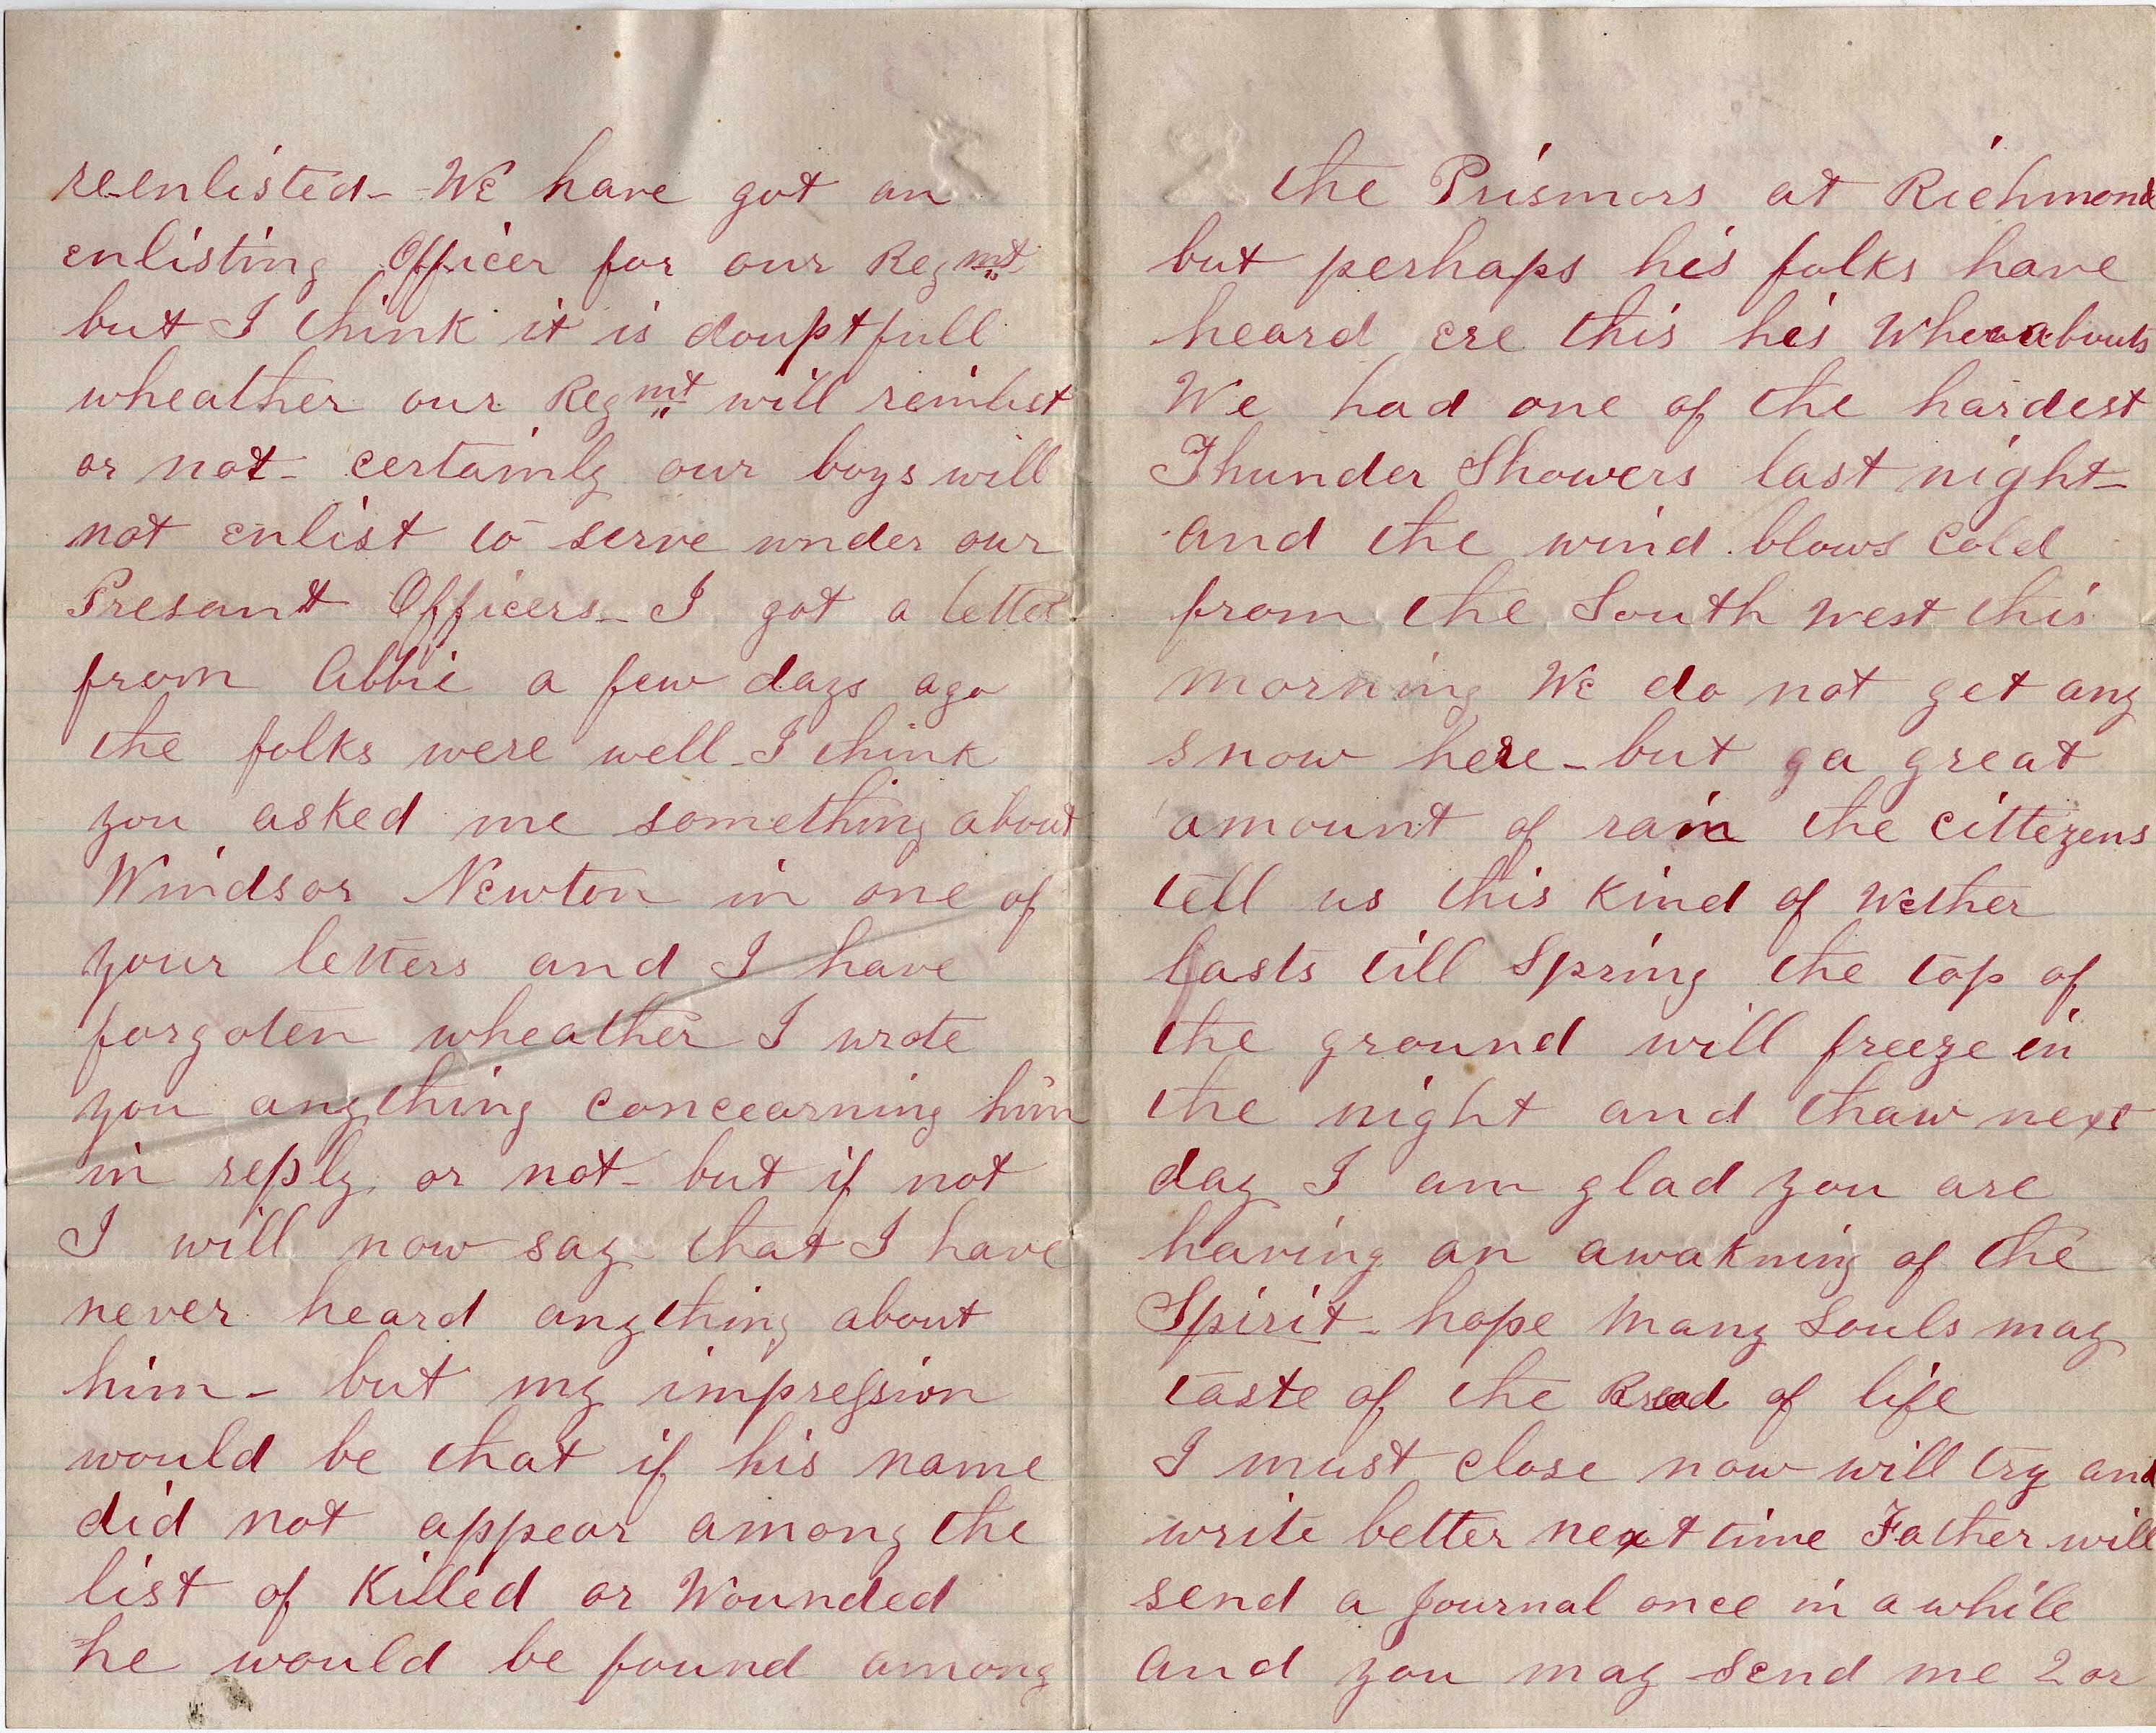 reenlisted - We have got an
enlisting Officer for our Regmt
but I think it is douptfull
wheather our Regmt will reinlist
or not - certainly our boys will
not enlist to serve under our
Presant Officers - I got a letter
from Abbie a few days ago
the folks were well - I think
you asked me something about
Windsor Newton in one of
your letters and I have
forgoten wheather I wrote
you anything concearning him
in reply or not - but if not
I will now say that I have
never heard anything about
him - but my impression
would be that if his name
did not appear among the
list of Killed or Wounded
he would be found among
the Prisnors at Richmond
but perhaps his folks have
heard ere this his Whereabouts
We had one of the hardest
Thunder Showers last night -
and the wind blows cold
from the South West this
morning We do not get any
snow here - but ga great
amount of rain the cittezens
tell us this Kind of Wether
lasts till Spring the top of
the ground will freeze in
the night and thaw next
day I am glad you are
having an awakning of the
Spirit - hope Many Souls may
taste of the Bread of life
I must close now will try and
write better next time Father will
send a Journal once in a while
and you may send me 2 or